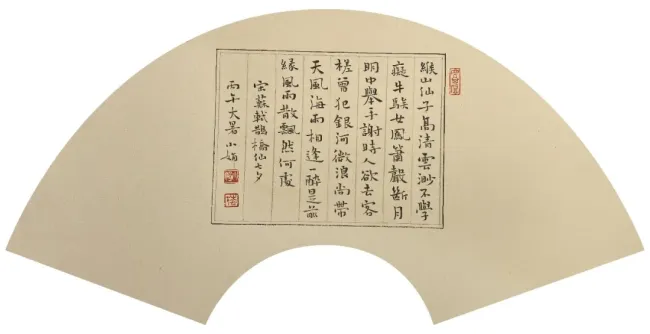 緱山仙子高清雲渺不學
癡牛騃女鳳簫聲斷月
明中舉手謝時人欲去客
槎曾犯銀河微浪尚帶
天風海雨相逢一醉是前
緣風雨散飄然何處
宋蘇軾鵲橋仙七夕
丙午大暑小娟